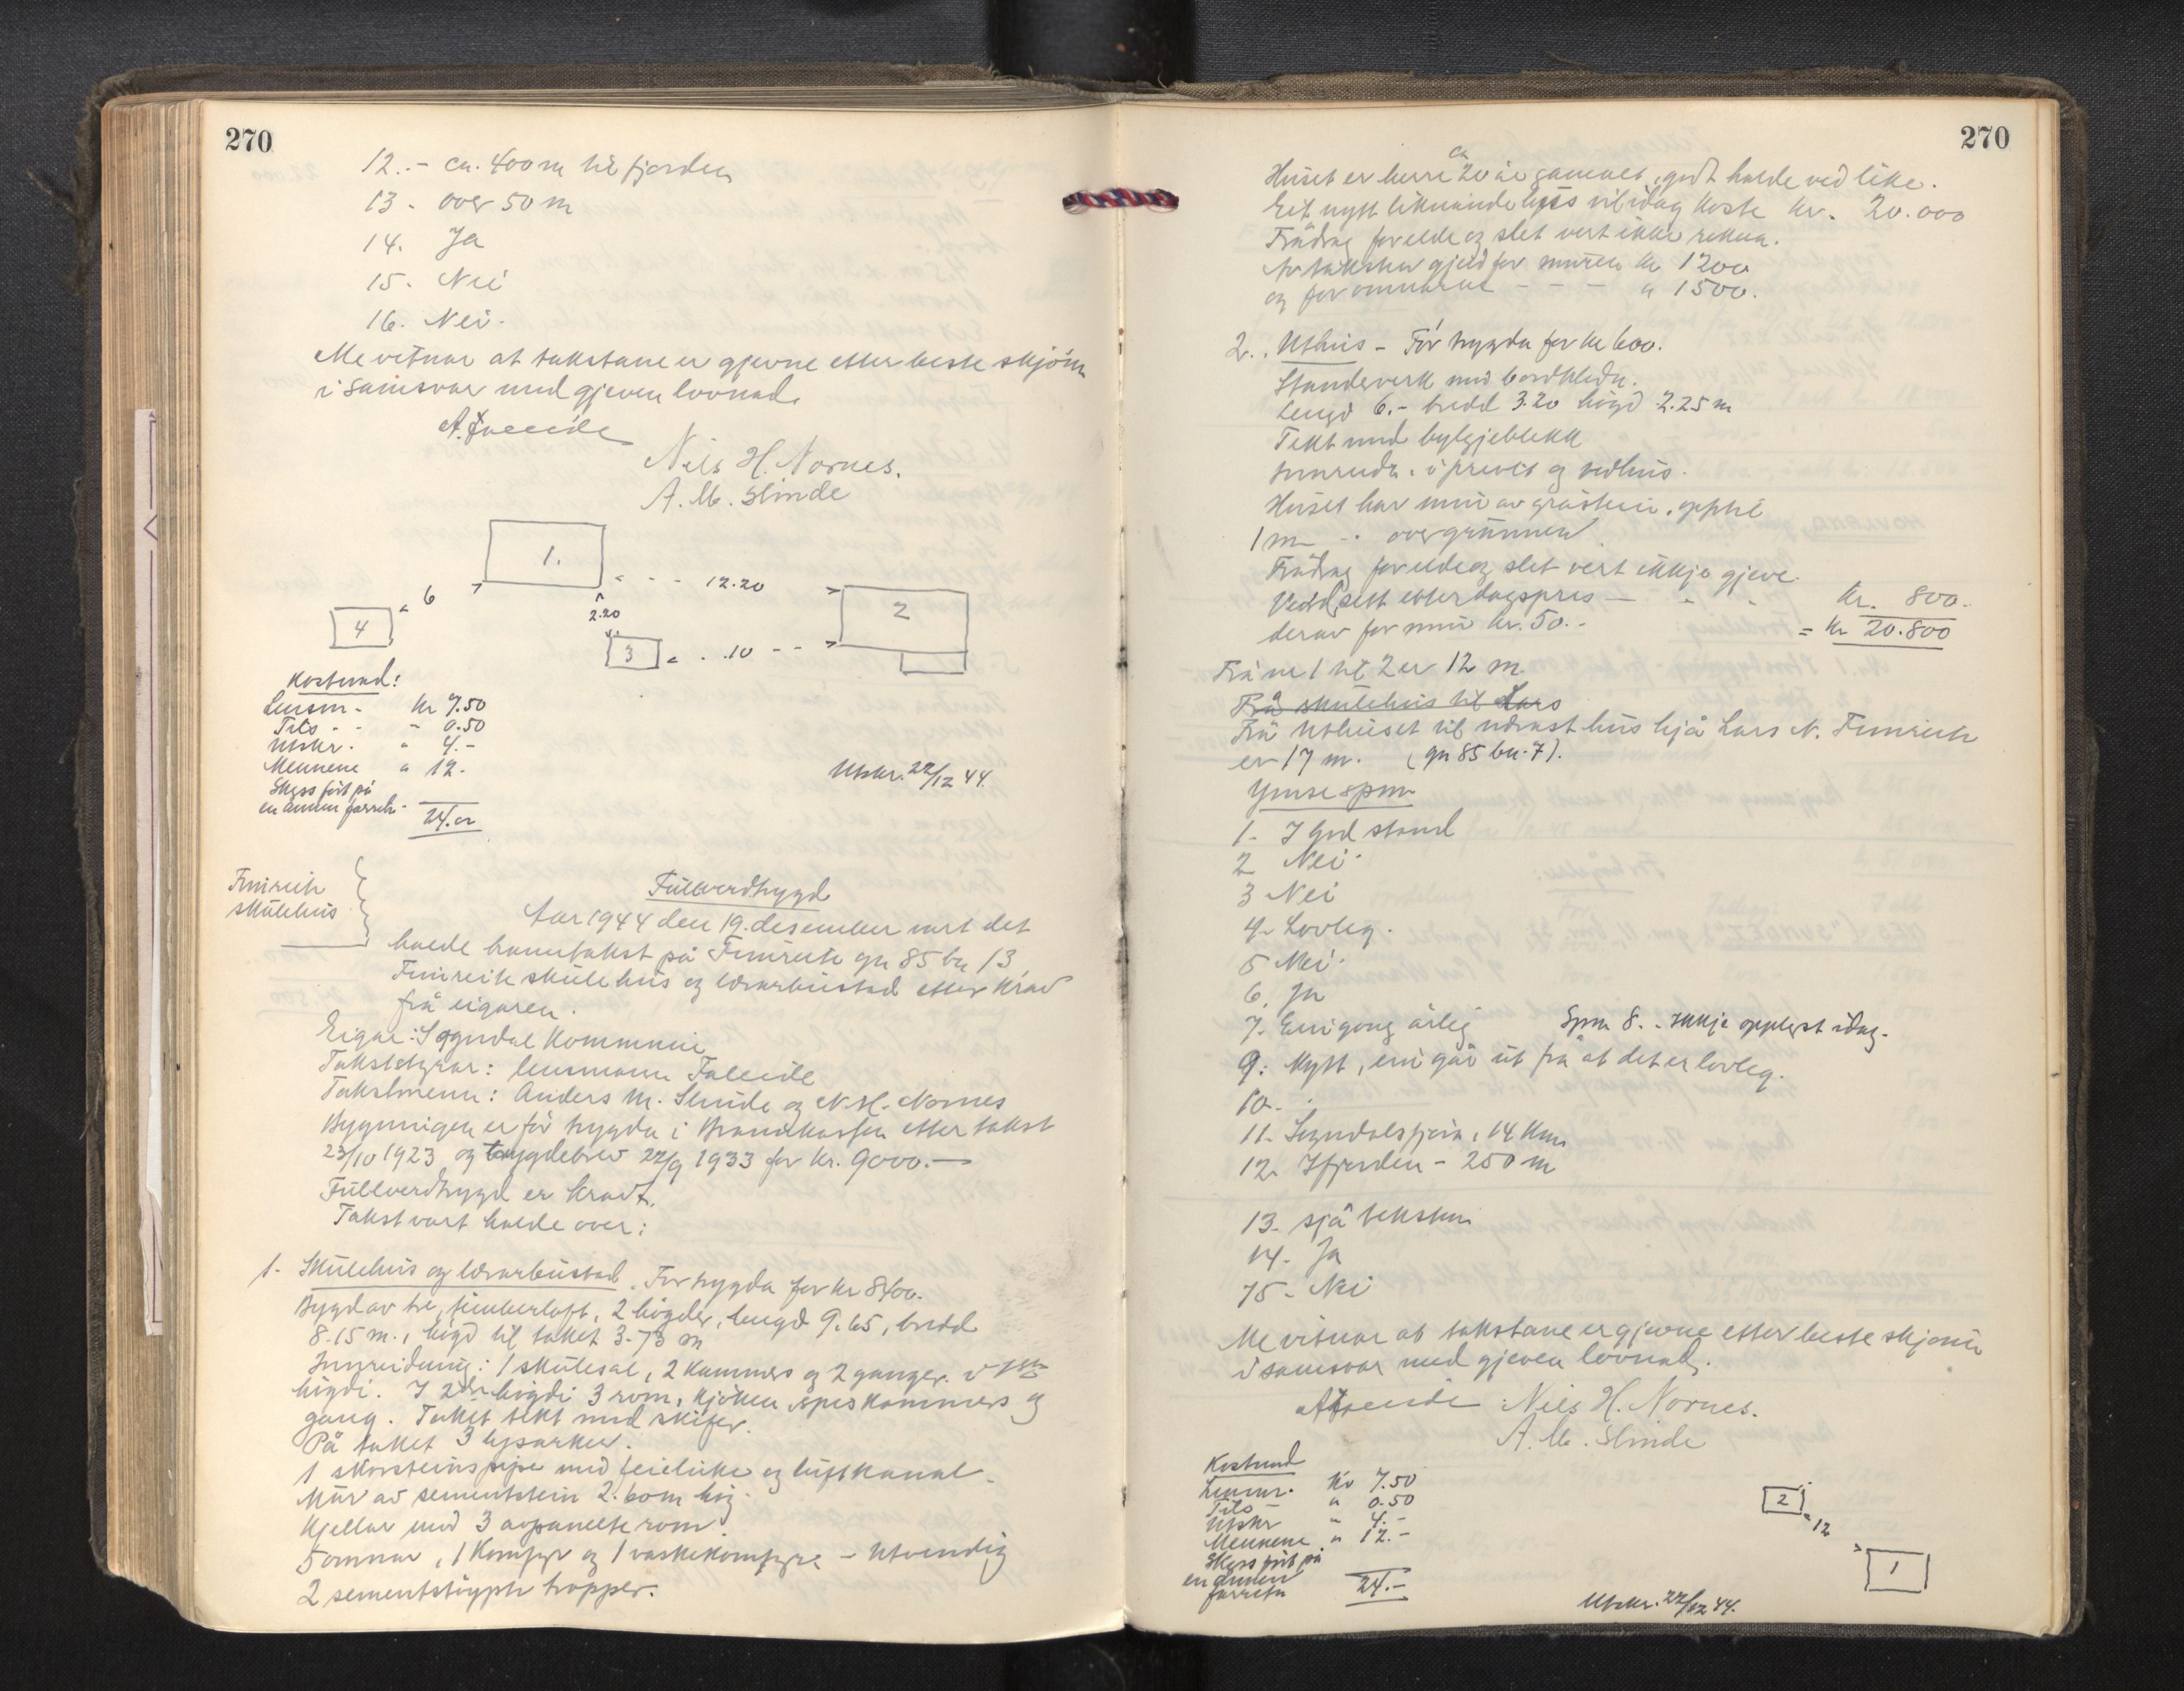 270
12.- ca. 400 m til fjorden
13 - over 50 m
14. Ja
15. Nei
16. Nei.
Me vitnar at takstane er gjevne etter beste skjön
i samsvar med gjeven lovnad.
A. Faleide
Nils H. Nornes.
A. M. Slinde
1.
6
12.20
2
4
2.20
3
10
Kostnad:
Lensm - kr 7.50
Tils - - " 0.50
Utskr. " 4.-
Mennene " 12.-
Skyss ført på
en annan forretn. 24.00
Utskr. 22/12 44.
Fimreite
skulehus
Fullverdtrygd
Aar 1944 den 19. desember vart det
halde branntakst på Fimreite gn 85 bn 13,
Fimreite skulehus og lærarbustad etter krav
frå eigaren.
Eigar: Sogndal Kommune
Takststyrar: lensmann Faleide
Takstmenn: Anders M. Slinde og N. H. Nornes
Bygningen er för trygda i Brannkassen etter takst
23/10 1923 og trygdebrev 22/9 1933 for kr. 9000.-
Fullverdtrygd er kravt.
Takst vart halde over:
1. Skulehus og lærarbustad. Før trygda for kr 8400.
Bygd av tre, timberloft, 2 høgder, lengd 9.65, bredd
8.15 m., høgd til taket 3.73 m
Innreidning: 1 skulesal, 2 kammers og 2 ganger i 1ste
högdi. I 2dre högdi 3 rom, kjöken, speskammers og
gang. Taket tekt med skifer.
På taket 3 lysarker.
1 skorsteinspipe med feieluke og luftkanal.
Mur av sementstein 2.60 m høg.
Kjellar med 3 avpanelte rom.
5 omnar, 1 komfyr og 1 vaskekomfyre - Utvendig
2 sementstöypte trapper.
270
Huset er berre ca 20 år gamalt, godt halde ved like.
Eit nytt liknande hus vil idag koste kr. 20.000
Frådrag for elde og slet vert ikke rekna.
Av taksten gjeld for muren kr 1200
og for omnarne - - - " 1500.
2. Uthus - För trygda for kr 600.
Standerverk med bordkledn.
Lengd 6.- bredd 3.20 högd 2.25 m
Tekt med bylgjeblekk
Innreidn. i privet og vedhus.
Huset har mur av gråstein, opptil
1 m - over grunnen
Frådrag for elde og slet vert ikkje gjeve.
Verd sett etter dagspris - - - kr. 800.
derav for mur kr. 50.- = kr 20.800
Frå nr 1 til 2 er 12 m.
Frå skulehus til Lars
Frå Uthuset til nærast hus hjå Lars N. Fimreite
er 17 m. (gn 85 bn. 7).
Ymse spm
1- I god stand
2 Nei
3 Nei
4- Lovleg.
5 Nei
6. Ja
7. Ein gong årleg Spm 8. - Ikkje opplyst idag.
9: Nytt, ein går ut frå at det er lovleg.
10-
11. Sogndalsfjøra, 14 km
12. I fjorden - 250 m
13. sjå teksten
14. Ja
15 - Nei
Me vitnar at takstane er gjevne etter beste skjønn
i samsvar med gjeven lovnad.
A Faleide Nils H. Nornes.
A. M. Slinde
Kostnad
Lensm. kr 7.50
Tils - " 0.50
Utskr " 4.-
Mennene " 12.-
Skyss ført på
en annen
forretn 24.-
2
12
1
Utskr. 22/12 44.